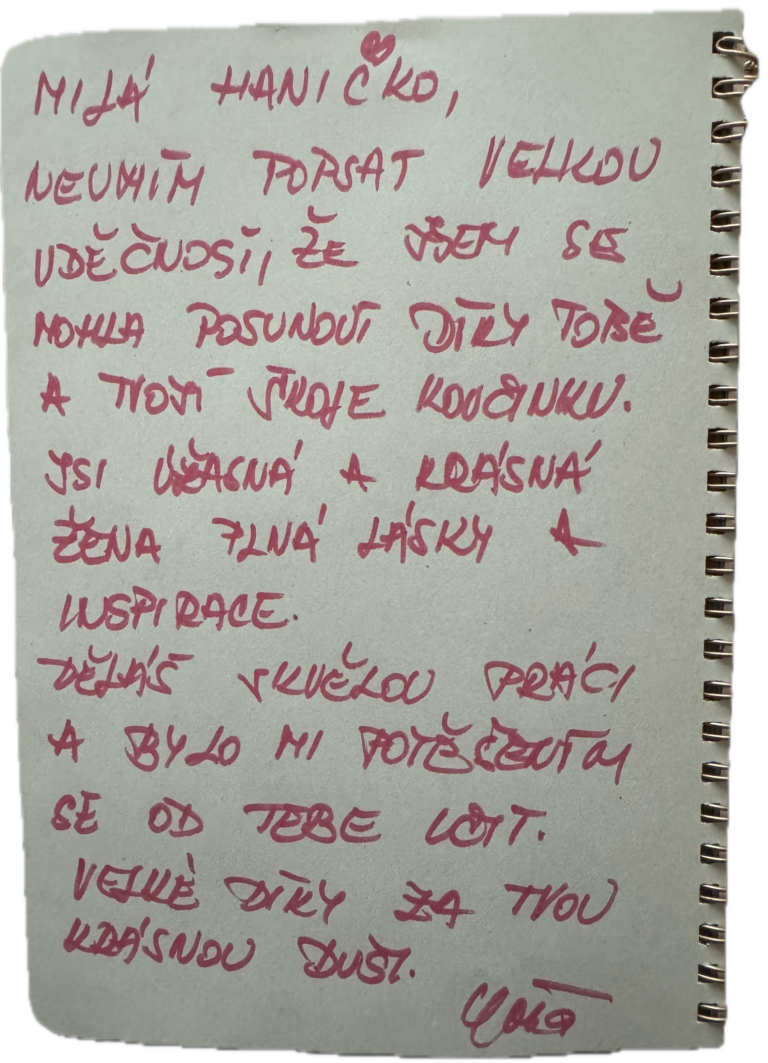 MILÁ HANIČKO,
NEUMÍM POPSAT VELKOU
VDĚČNOST, ŽE JSEM SE
MOHLA POSUNOUT DÍKY TOBĚ
A TVOJÍ ŠKOLE KOUČINKU.
JSI ÚŽASNÁ A KRÁSNÁ
ŽENA PLNÁ LÁSKY A
INSPIRACE.
DĚLÁŠ SKVĚLOU PRÁCI
A BYLO MI POTĚŠENÍM
SE OD TEBE UČIT.
VELKÉ DÍKY ZA TVOU
KRÁSNOU DUŠI.